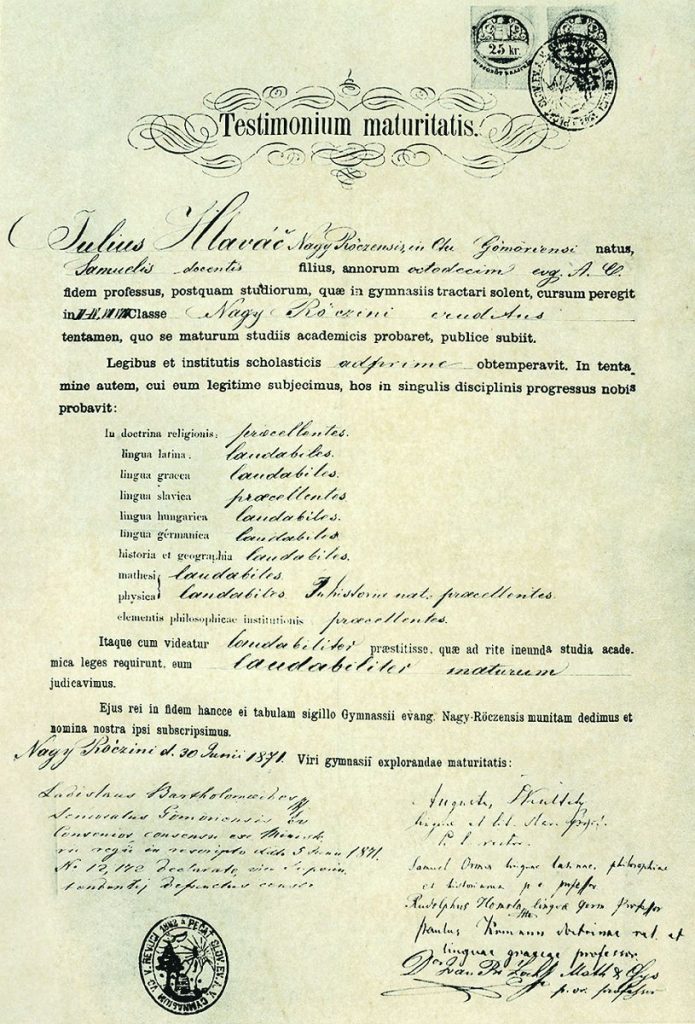 25 kr.
Testimonium maturitatis.
Julius Hlaváč Nagy Röczensis, in Cttu Gömöriensi natus,
Samuelis docentis filius, annorum octodecim evg. A. C.
fidem professus, postquam studiorum, quæ in gymnasiis tractari solent, cursum peregit
in Classe Nagy Röczini eruditus
tentamen, quo se maturum studiis academicis probaret, publice subiit.
Legibus et institutis scholasticis adprime obtemperavit. In tenta
mine autem, cui eum legitime subjecimus, hos in singulis disciplinis progressus nobis
probavit:
In doctrina religionis: præcellentes.
lingua latina: laudabiles.
lingua græca laudabiles.
lingua slavica præcellentes
lingua hungarica laudabiles.
lingua germanica laudabiles
historia et geographia laudabiles.
mathesi laudabiles
physica laudabiles. In historia nat. præcellentes.
elementis philosophicae institutionis præcellentes.
Itaque cum videatur laudabiliter præstitisse, quæ ad rite ineunda studia acade.
mica leges requirunt, eum laudabiliter maturum
judicavimus.
Ejus rei in fidem hancce ei tabulam sigillo Gymnassii evang. Nagy-Röczensis munitam dedimus et
nomina nostra ipsi subscripsimus.
Nagy Röczini d. 30 Junii 1871. Viri gymnasii explorandae maturitatis:
Ladislaus Bartholomaeides
Senioratus Gömöriensis
Consenior consensu exc. Minist
rii regii in rescripto ddto 5 Junii 1871.
No 12,172 declarato, vice
defunctus
August
lingua et lit. slav. 
p. t. rector.
Samuel Ormis linguae latinae, philosophiae
et historiarum p. o. professor
Rudolphus Homola linguæ germ. Professor
Paulus doctrinae rel. et
linguae graecae professor.
Math & Phys
p. or. professor
PEČAT SLOV. EV. A. V. GYMNASIUM VO V. REVÚCI 1862